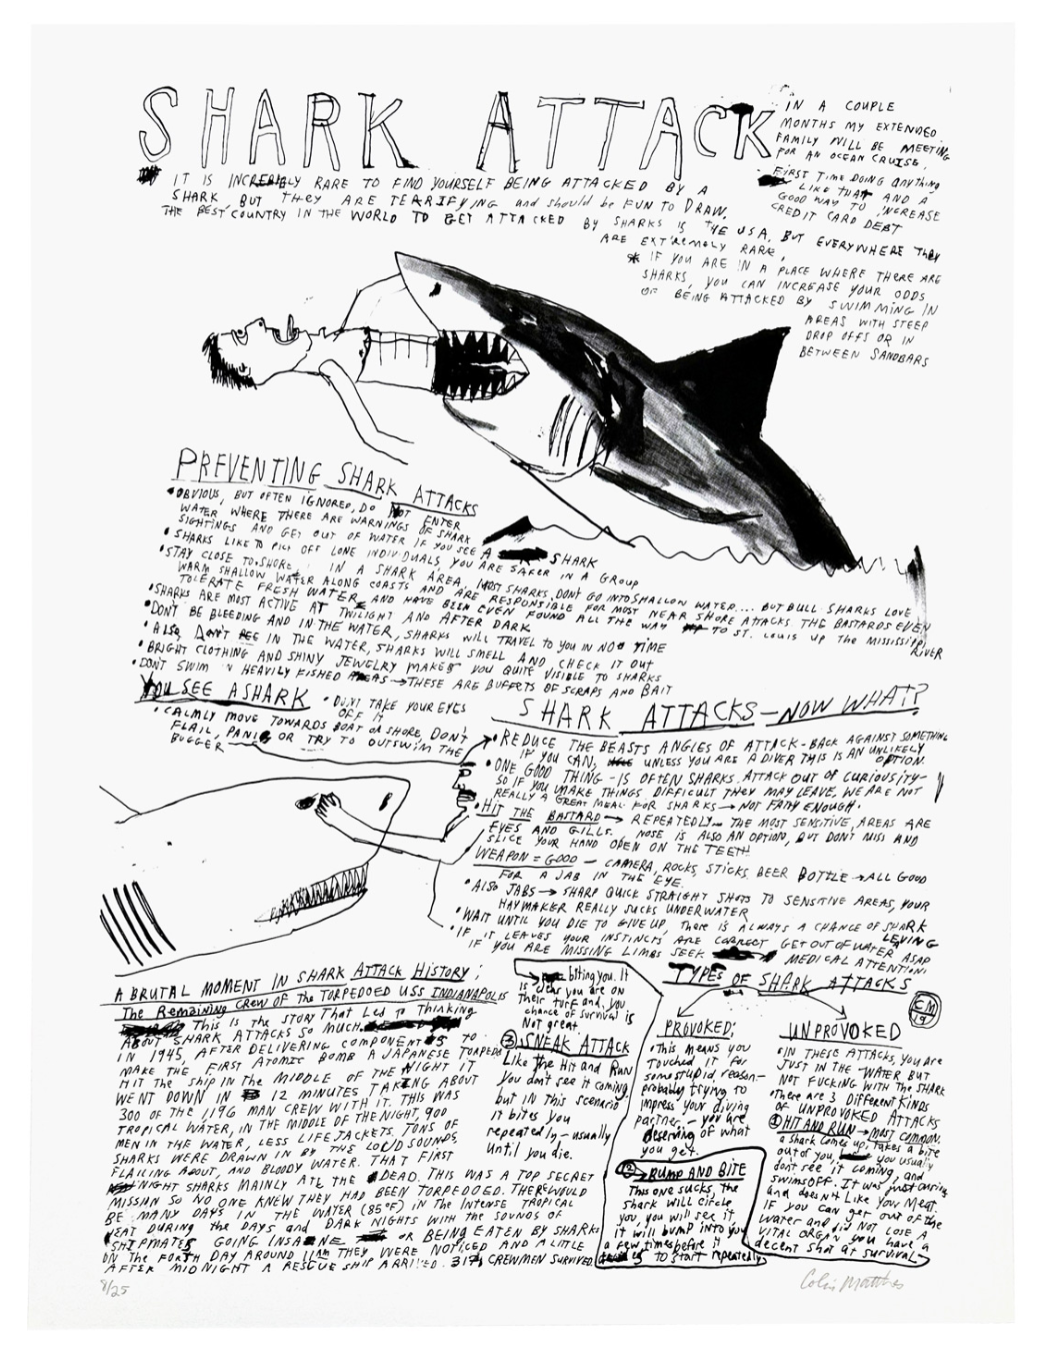 SHARK ATTACK
IN A COUPLE
MONTHS MY EXTENDED
FAMILY WILL BE MEETING
FOR AN OCEAN CRUISE.
FIRST TIME DOING ANYTHING
LIKE THAT AND A
GOOD WAY TO INCREASE
CREDIT CARD DEBT
IT IS INCREDIBLY RARE TO FIND YOURSELF BEING ATTACKED BY A
SHARK BUT THEY ARE TERRIFYING and should be FUN TO DRAW.
THE BEST COUNTRY IN THE WORLD TO GET ATTACKED BY SHARKS IS THE USA. BUT EVERYWHERE THEY
ARE EXTREMELY RARE.
* IF YOU ARE IN A PLACE WHERE THERE ARE
SHARKS, YOU CAN INCREASE YOUR ODDS
OF BEING ATTACKED BY SWIMMING IN
AREAS WITH STEEP
DROP OFFS OR IN
BETWEEN SANDBARS
PREVENTING SHARK ATTACKS
• OBVIOUS, BUT OFTEN IGNORED, DO NOT ENTER
WATER WHERE THERE ARE WARNINGS OF SHARK
SIGHTINGS AND GET OUT OF WATER IF YOU SEE A SHARK
• SHARKS LIKE TO PICK OFF LONE INDIVIDUALS, YOU ARE SAFER IN A GROUP
• STAY CLOSE TO SHORE IN A SHARK AREA, MOST SHARKS DONT GO INTO SHALLOW WATER.... BUT BULL SHARKS LOVE
WARM SHALLOW WATER ALONG COASTS AND ARE RESPONSIBLE FOR MOST NEAR SHORE ATTACKS THE BASTARDS EVEN
TOLERATE FRESH WATER AND HAVE BEEN EVEN FOUND ALL THE WAY TO ST. LOUIS UP THE MISSISSIPPI
RIVER
• SHARKS ARE MOST ACTIVE AT TWILIGHT AND AFTER DARK
• DON'T BE BLEEDING AND IN THE WATER, SHARKS WILL TRAVEL TO YOU IN NO TIME
• ALSO, DON'T PEE IN THE WATER, SHARKS WILL SMELL AND CHECK IT OUT
• BRIGHT CLOTHING AND SHINY JEWELRY MAKES YOU QUITE VISIBLE TO SHARKS
• DONT SWIM IN HEAVILY FISHED AREAS → THESE ARE BUFFETS OF SCRAPS AND BAIT
YOU SEE A SHARK
• DONT TAKE YOUR EYES
OFF IT
• CALMLY MOVE TOWARDS BOAT OR SHORE, DON'T
FLAIL, PANIC OR TRY TO OUTSWIM THE
BUGGER
SHARK ATTACKS — NOW WHAT?
• REDUCE THE BEASTS ANGLES OF ATTACK - BACK AGAINST SOMETHING
IF YOU CAN, UNLESS YOU ARE A DIVER THIS IS AN UNLIKELY
OPTION.
• ONE GOOD THING - IS OFTEN SHARKS ATTACK OUT OF CURIOUSITY -
SO IF YOU MAKE THINGS DIFFICULT THEY MAY LEAVE, WE ARE NOT
REALLY A GREAT MEAL FOR SHARKS → NOT FATTY ENOUGH.
• HIT THE BASTARD → REPEATEDLY - THE MOST SENSITIVE AREAS ARE
EYES AND GILLS. NOSE IS ALSO AN OPTION, BUT DON'T MISS AND
SLICE YOUR HAND OPEN ON THE TEETH!
WEAPON = GOOD — CAMERA, ROCKS, STICKS, BEER BOTTLE → ALL GOOD
FOR A JAB IN THE EYE.
• ALSO JABS → SHARP QUICK STRAIGHT SHOTS TO SENSITIVE AREAS, YOUR
HAYMAKER REALLY SUCKS UNDERWATER
• WAIT UNTIL YOU DIE TO GIVE UP, THERE IS ALWAYS A CHANCE OF SHARK
LEAVING
• IF IT LEAVES YOUR INSTINCTS ARE CORRECT GET OUT OF WATER ASAP
IF YOU ARE MISSING LIMBS SEEK MEDICAL ATTENTION.
A BRUTAL MOMENT IN SHARK ATTACK HISTORY;
The Remaining CREW OF THE TORPEDOED USS INDIANAPOLIS
This is the STORY That LED TO Thinking
ABOUT SHARK ATTACKS SO MUCH
IN 1945, AFTER DELIVERING COMPONENTS TO
MAKE THE FIRST ATOMIC BOMB A JAPANESE TORPEDO
HIT THE SHIP IN THE MIDDLE OF THE NIGHT IT
WENT DOWN IN 12 MINUTES TAKING ABOUT
300 OF THE 1196 MAN CREW WITH IT. THIS WAS
TROPICAL WATER, IN THE MIDDLE OF THE NIGHT, 900
MEN IN THE WATER, LESS LIFE JACKETS. TONS OF
SHARKS WERE DRAWN IN BY THE LOUD SOUNDS,
FLAILING ABOUT, AND BLOODY WATER. THAT FIRST
NIGHT SHARKS MAINLY ATE THE DEAD. THIS WAS A TOP SECRET
MISSION SO NO ONE KNEW THEY HAD BEEN TORPEDOED. THERE WOULD
BE MANY DAYS IN THE WATER (85°F) IN THE INTENSE TROPICAL
HEAT DURING THE DAYS and DARK NIGHTS WITH THE SOUNDS OF
SHIPMATES GOING INSANE OR BEING EATEN BY SHARKS
ON THE FOURTH DAY AROUND 11am THEY WERE NOTICED AND A LITTLE
AFTER MIDNIGHT A RESCUE SHIP ARRIVED. 317 CREWMEN SURVIVED.
TYPES OF SHARK ATTACKS
CM
PROVOKED;
• This means you
Touched it for
some stupid reason -
probably trying to
impress your diving
partner. — you are
deserving of what
you get.
UNPROVOKED
• IN THESE ATTACKS, YOU ARE
JUST IN THE WATER BUT
NOT FUCKING WITH THE SHARK
• There are 3 Different KINDS
OF UNPROVOKED ATTACKS
① HIT AND RUN → MOST COMMON.
a shark comes up, takes a bite
out of you, you usually
dont see it coming, and
swims off. It was just curious
and doesn't like your meat.
IF you can get out of the
water and did NOT LOSE A
VITAL ORGAN you have a
decent shot at survival.
② BUMP AND BITE
This one sucks, the
shark will circle
you, you will see it
it will bump into you
a few times before it
to start repeatedly
biting you. It
is clear you are on
their turf and you
chance of survival is
Not great.
③ SNEAK ATTACK
Like the Hit and Run
you dont see it coming
but in this scenario
it bites you
repeatedly — usually
until you die.
8/25
Colin Matthes